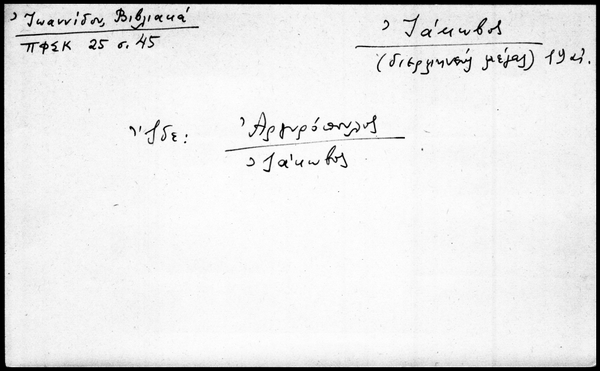 Ἰωαννίδου, Βιβλιακά
ΠΦΣΚ 25 σ. 45
Ἰάκωβος
(διερμηνεὺς μέγας) 19 αἰ.
Ἴδε: Ἀργυρόπουλος
Ἰάκωβος